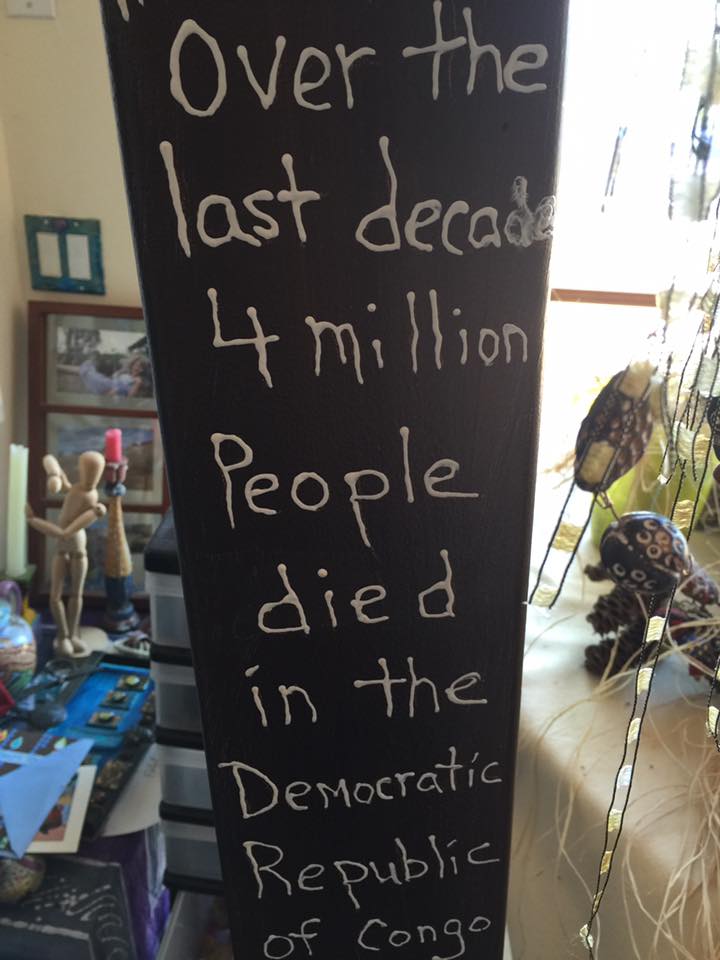 Over the
last decade
4 million
People
died
in the
Democratic
Republic
of Congo